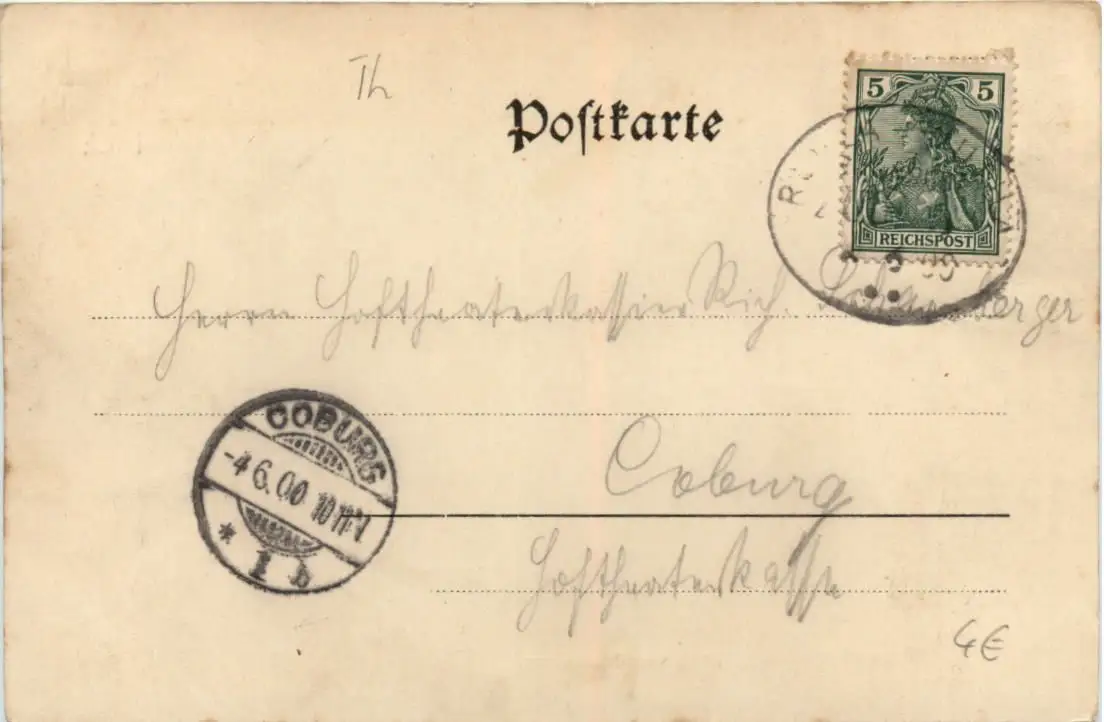 Th
Postkarte
5 5
REICHSPOST
Herrn Hoftheaterkassier Rich.
COBURG
-4 6.00 10-11V
* 1 b
Coburg
Hoftheaterkasse
4€